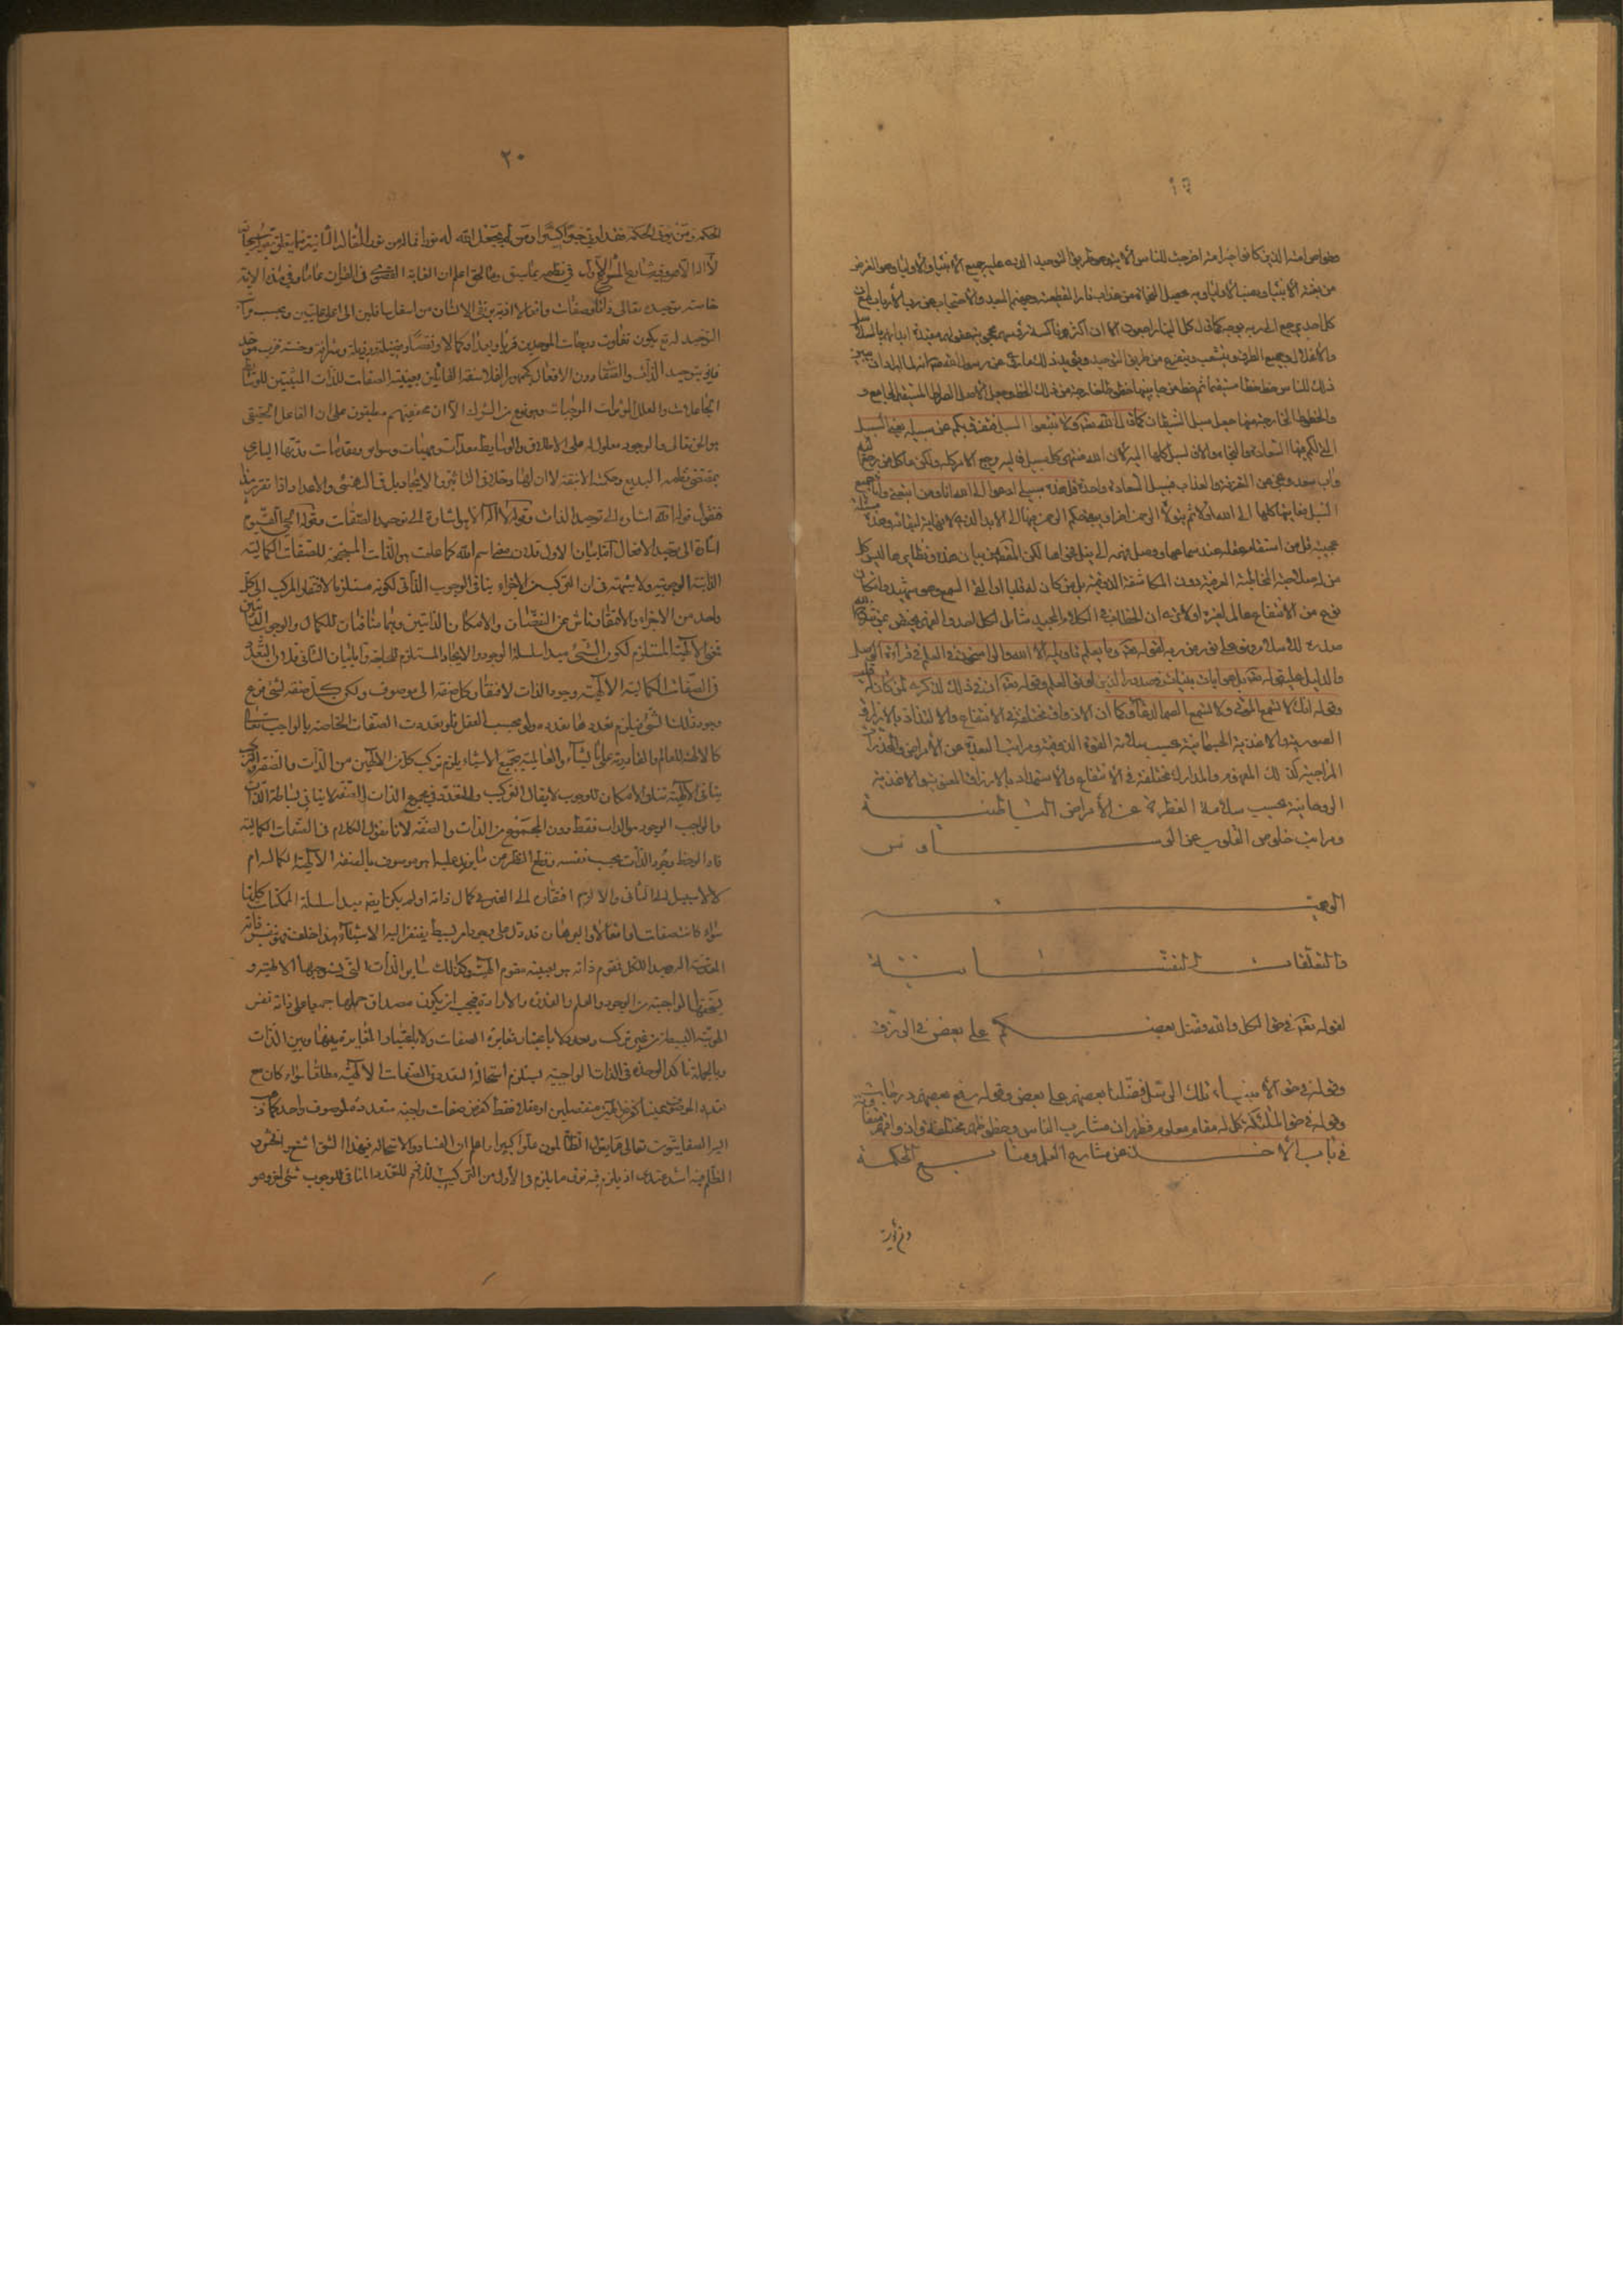 ١٩
وخواص امته الذين كانوا خير امة اخرجت للناس الا بتوحيد وطريق التوحيد الذي عليه جميع الانبياء والاولياء وهو الغرض
من بعثة الانبياء ونصب الاولياء وبه يحصل النجاة من عذاب نار القطيعة وجهنم البعد والاحتجاب عن رب الارباب
كل احد يرجع الى ربه بوجه كما قال كل الينا راجعون الا ان اكثرهم ناكسة رؤسهم محجوبة
والاغلال وجميع الطرق ينشعب ويتفرع من طريق التوحيد ويؤيد ذلك ما روي عن رسول الله انه لما اراد ان يبين
ذلك للناس خط خطا مستقيما ثم خط من جانبيها خطوطا خارجة من ذلك الخط وجعل الاصل الصراط المستقيم الجامع و
والخطوط الخارجة منها جعل سبل الشيطان كما قال الله تعالى ولا تتبعوا السبل فتفرق بكم عن سبيله يعني السبيل
التي لكم فيها السعادة والنجاة والا فالسبل كلها اليه لان الله منتهى كل سبيل فاليه يرجع الامر كله ولكن ما كل من رجع اليه
وآب سعد ونجى عن التفرقة والعذاب فسبيل السعادة واحدة قل هذه سبيلي ادعوا الى الله انا ومن اتبعني واما جميع
السبل فغايتها كلها الى الله اولا ثم يتولاه الرحمن اخرا ويبقى حكم الرحمن فيها الى الابد الذي لا نهاية لبقائه وهذه مسئلة
عجيبة قل من استقام عقله عند سماعها ووصل فهمه الى نيل فحواها لكن المقصود من بيان هذه ونظايرها ليس كل
من له صلاحية المخاطبة العرفية دون المكاشفة الذوقية بل من كان له قلب او القى السمع وهو شهيد وان كان
نوع من الانتفاع حاصلا لغيره اولا ترى ان الخطاب في الكلام المجيد شامل لكل احد والفهم يختص بمن شرح الله
صدره للاسلام فهو على نور من ربه لقوله تعالى وما يعلم تاويله الا الله والراسخون في العلم في قراءة الوصل
والدليل عليه قوله تعالى بل هو ايات بينات في صدور الذين اوتوا العلم وقوله تعالى ان في ذلك لذكرى لمن كان له قلب
وقوله انك لا تسمع الموتى ولا تسمع الصم الدعاء وكما ان الاذواق مختلفة في الانتفاع والالتذاذ بالارزاق
الصورية والاغذية الجسمانية بحسب سلامة القوة الذوقية ومراتب البعد عن الامراض
المزاجية كذلك الفهوم والمدارك مختلفة في الانتفاع والاستمداد بالارزاق المعنوية والاغذية
الروحانية بحسب سلامة الفطرة عن الأمراض الباطنية
ومراتب خلوص القلوب عن الوساوس
الوهمية
والتعلقات النفسانية
لقوله تعالى في حق الكل والله فضل بعضكم على بعض في الرزق
وقوله في حق الانبياء تلك الرسل فضلنا بعضهم على بعض وقوله رفع بعضهم درجات
وقوله في حق الملئكة كل له مقام معلوم فظهر ان مشارب الناس وحظوظهم مختلفة
في باب الاخذ عن مشارع العلم ومنابع الحكمة
ومن يؤت
٢٠
الحكمة ومن يؤتى الحكمة فقد اوتي خيرا كثيرا ومن لم يجعل الله له نورا فما له من نور المقالة الثانية فيما يتعلق بقوله سبحانه
لا اله الا هو وفيه مشارع المشرع الاول في نظمه بما سبق وما لحق اعلم ان الغاية القصوى في القران عامة وفي هذه الاية
خاصة توحيده تعالى ذاتا وصفات وافعالا اذ به يرتقي الانسان من اسفل سافلين الى اعلى عليين وبحسب مراتب
التوحيد يكون تفاوت درجات الموحدين قربا وبعدا وكمالا ونقصا وفضيلة ورذيلة وشرافة وخسة فرب موحد
فاز بتوحيد الذات والصفات دون الافعال كجمهور الفلاسفة القائلين بعينية الصفات للذات المثبتين للوسائط
الجاعلات والعلل المؤثرات الموجبات وهو نوع من الشرك الا ان محققيهم متفقون على ان الفاعل الحقيقي
هو الحق تعالى والوجود معلول له على الاطلاق والوسايط معدات ومهيئات وسوابق ومقدمات رتبها الباري
بمقتضى نظمه البديع وحكمته الانيقة لا ان لها مدخلا في التأثير والايجاد بل في التهيئة والاعداد اذا تقرر هذا
فنقول قوله الله اشارة الى توحيد الذات وقوله لا اله الا هو اشارة الى توحيد الصفات وقوله الحي القيوم
اشارة الى توحيد الافعال اما بيان الاول فلان معنى اسم الله كما علمت هو الذات المستجمعة للصفات الكمالية
الثابتة الوجوبية ولا شبهة في ان التركيب من الاجزاء ينافي الوجوب الذاتي لكونه مستلزما لافتقار المركب الى كل
واحد من الاجزاء والافتقار ناش عن النقصان والامكان الذاتيين وهما منافيان للكمال والوجوب الذاتيين
معنى الالهية المستلزم لكون الشئ مبدأ سلسلة الوجود والايجاد المستلزم للحاجة واما بيان الثاني فلان التعدد
في الصفات الكمالية الالهية وجود الذات لافتقار كل صفة الى موصوف ولكون كل صفة لشئ فرع
وجود ذلك الشئ فيلزم تعددها تعدده ولو بحسب العقل فلو تعددت الصفات الخاصة بالواجب تعالى
كالالهية للعالم والقادرية على ما يشاء والعالمية بجميع الاشياء يلزم تركب كل من الالهين من الذات والصفة والتركيب
ينافي الالهية تنافي الامكان للوجوب لا يقال التركيب والتعدد في مجموع الذات والصفة لا ينافي بساطة الذات
والواجب الوجود هو الذات فقط دون المجموع من الذات والصفة لانا نقول الكلام في الصفات الكمالية
فاذا لوحظ وجود الذات بحسب نفسه وقطع النظر عن ما يزيد عليه اهو موصوف بالصفة الالهية الكمالية ام
لا لا سبيل الى الثاني والا لزم افتقاره الى الغير في كمال ذاته او لم يكن ما يقع مبدأ سلسلة الممكنات كلها
سواء كانت صفات او افعالا والبرهان قد دل على وجود امر بسيط يفتقر اليه الاشياء هذا خلف فهو بنفس ذاته
المقدسة الوحيد التكل بقوام ذاته هو بعينه مقوم الهيته وكذلك ساير الذات التي يستوجبها الالهية و
يستحقها الواجبية من الوجود والعلم والقدرة والارادة فيجب ان يكون مصداق حملها جميعا على ذاته نفس
الهوية البسيطة من غير تركب وتعدد لا باعتبار تغاير الصفات ولا باعتبار المغايرة بينها وبين الذات
وبالجملة تأكد الوحدة في الذات الواجبية يستلزم استحالة التعدد في الصفات الالهية مطلقا سواء كان مع
تعدد الموصوف عينا كفرض الهين منفصلين او عقلا فقط كفرض صفات واجبة متعددة لموصوف واحد كما ذهب
اليه الصفاتيون تعالى عما يقول الظالمون علوا كبيرا واعلم ان الفساد والاستحالة في هذا الشق اشنع وافحش و
الظلم فيه اشد عندي اذ يلزم فيه فوق ما يلزم في الأول من التركيب اللازم للتعدد المنافي للوجوب شئ اخر وهو